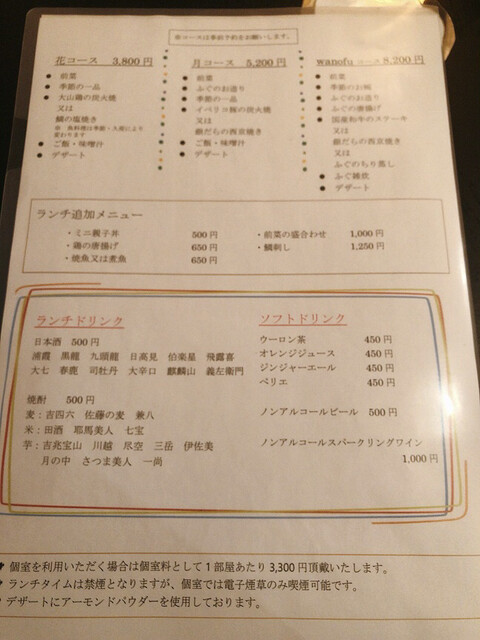 ※コースは事前予約をお願いします。
花コース 3,800円
● 前菜
● 季節の一品
● 大山鶏の炭火焼
又は
鯛の塩焼き
※ 魚料理は季節・入荷により
変わります
● ご飯・味噌汁
● デザート
月コース 5,200円
● 前菜
● ふぐのお造り
● 季節の一品
● イベリコ豚の炭火焼
又は
銀だらの西京焼き
● ご飯・味噌汁
● デザート
wanofuコース 8,200円
● 前菜
● 季節のお椀
● ふぐのお造り
● ふぐの唐揚げ
● 国産和牛のステーキ
又は
銀だらの西京焼き
又は
ふぐのちり蒸し
● ふぐ雑炊
● デザート
ランチ追加メニュー
・ミニ親子丼 500円
・鶏の唐揚げ 650円
・焼魚又は煮魚 650円
・前菜の盛合わせ 1,000円
・鯛刺し 1,250円
ランチドリンク
日本酒 500円
浦霞 黒龍 九頭龍 日高見 伯楽星 飛露喜
大七 春鹿 司牡丹 大辛口 麒麟山 義左衛門
焼酎 500円
麦：吉四六 佐藤の麦 兼八
米：田酒 耶馬美人 七宝
芋：吉兆宝山 川越 尽空 三岳 伊佐美
月の中 さつま美人 一尚
ソフトドリンク
ウーロン茶 450円
オレンジジュース 450円
ジンジャーエール 450円
ペリエ 450円
ノンアルコールビール 500円
ノンアルコールスパークリングワイン
1,000円
個室を利用いただく場合は個室料として1部屋あたり3,300円頂戴いたします。
ランチタイムは禁煙となりますが、個室では電子煙草のみ喫煙可能です。
デザートにアーモンドパウダーを使用しております。